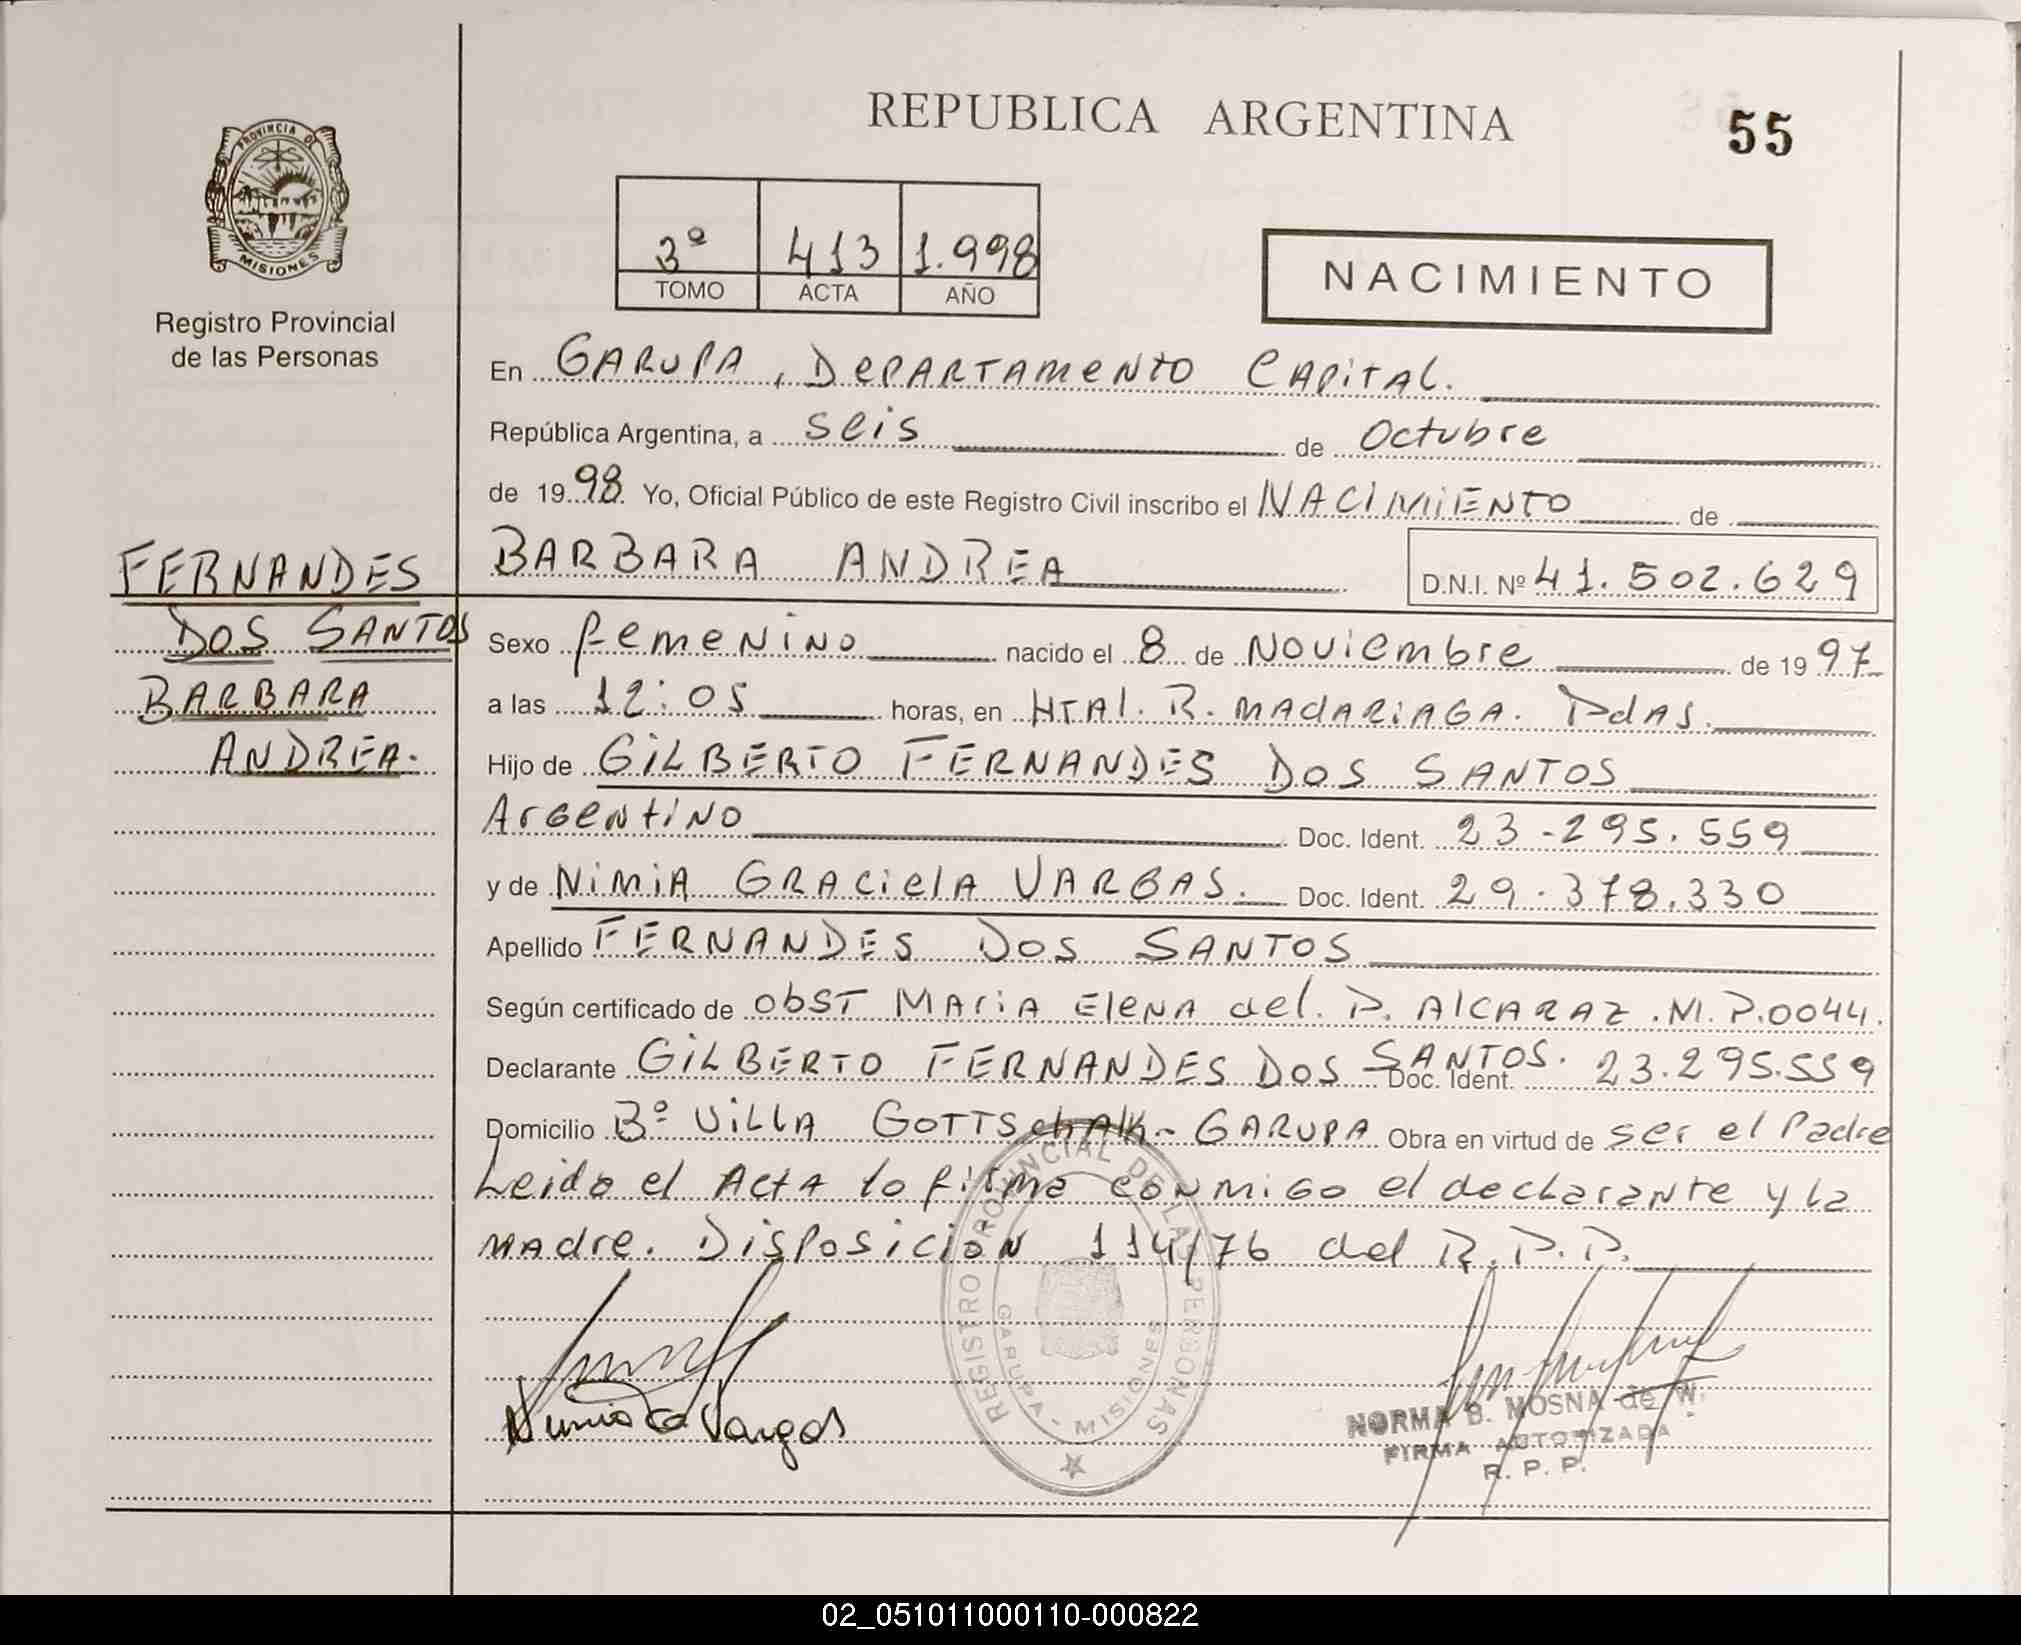 REPUBLICA ARGENTINA
55
PROVINCIA DE
MISIONES
Registro Provincial
de las Personas
3º 413 1.998
TOMO ACTA AÑO
NACIMIENTO
En GARUPA, DEPARTAMENTO CAPITAL.
República Argentina, a seis de Octubre
de 1998. Yo, Oficial Público de este Registro Civil inscribo el NACIMIENTO de
BARBARA ANDREA D.N.I. Nº 41.502.629
FERNANDES
DOS SANTOS
BARBARA
ANDREA.
Sexo femenino nacido el 8 de Noviembre de 1997
a las 12:05 horas, en HTAl. R. MADARIAGA. PdAS.
Hijo de GILBERTO FERNANDES DOS SANTOS
Argentino Doc. Ident. 23-295.559
y de NIMIA GRACIELA VARGAS. Doc. Ident. 29.378.330
Apellido FERNANDES DOS SANTOS
Según certificado de obST MARIA ElENA del. P. AlCARAZ. M.P.0044.
Declarante GILBERTO FERNANDES DOS SANTOS. Doc. Ident. 23.295.559
Domicilio Bº VILLA GOTTSchAlK - GARUPA Obra en virtud de ser el Padre
Leido el ActA lo firma conmigo el declarante y la
madre. Disposición 114/76 del R.P.P.
REGISTRO PROVINCIAL DE LAS PERSONAS
GARUPA - MISIONES
Vargas
NORMA B. MOSNA de W.
FIRMA AUTORIZADA
R. P. P.
02_051011000110-000822